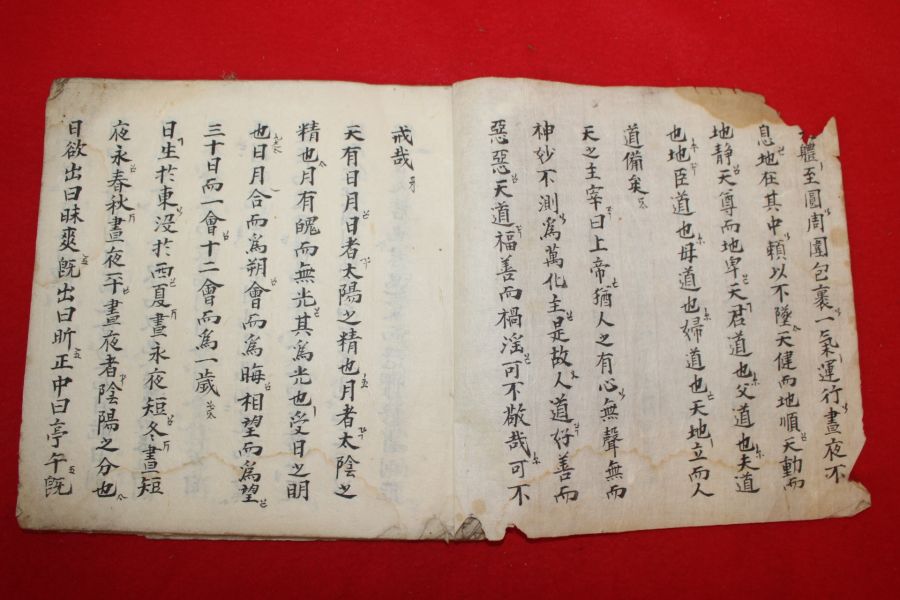 體至圓周圍包裹一氣運行晝夜不
息地在其中賴以不墜天健而地順天動而
地静天尊而地卑天君道也父道也夫道
也地臣道也母道也婦道也天地立而人
道備矣
天之主宰曰上帝猶人之有心無聲無而
神妙不測爲萬化主是故人道仔善而
惡惡天道福善而禍滛可不敬哉可不
戒哉
天有日月日者太陽之精也月者太陰之
精也月有魄而無光其爲光也受日之明
也日月合而爲朔會而爲晦相望而爲望
三十日而一會十二會而爲一歲
日生於東没於西夏晝永夜短冬晝短
夜永春秋晝夜平晝夜者陰陽之分也
日欲出曰昧爽旣出曰昕正中曰亭午旣